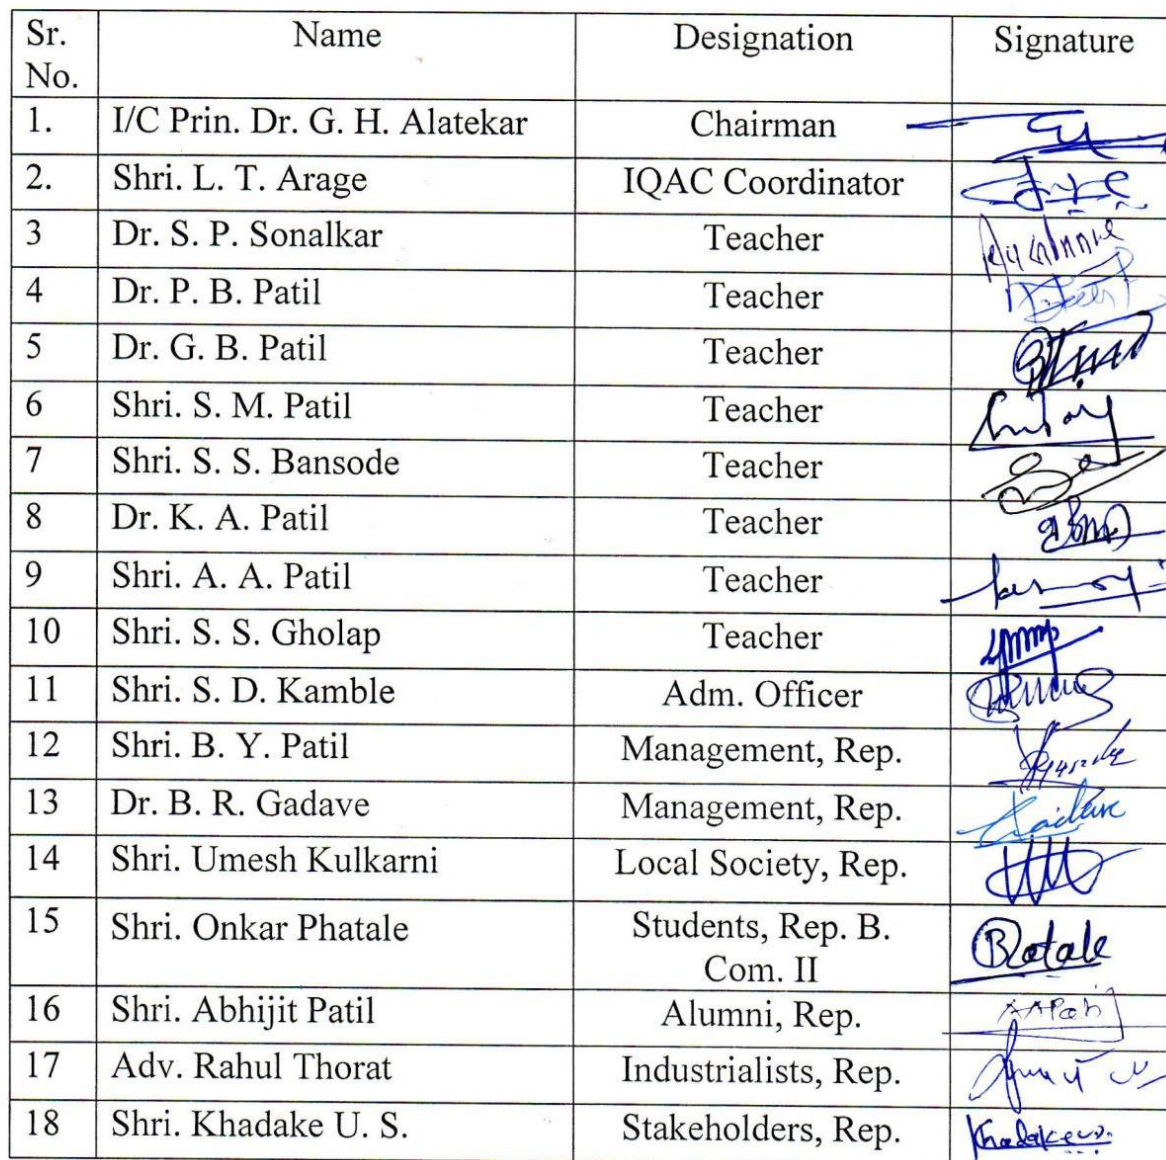 Sr. No. Name Designation Signature
1. I/C Prin. Dr. G. H. Alatekar Chairman
2. Shri. L. T. Arage IQAC Coordinator
3 Dr. S. P. Sonalkar Teacher
4 Dr. P. B. Patil Teacher
5 Dr. G. B. Patil Teacher
6 Shri. S. M. Patil Teacher
7 Shri. S. S. Bansode Teacher
8 Dr. K. A. Patil Teacher
9 Shri. A. A. Patil Teacher
10 Shri. S. S. Gholap Teacher
11 Shri. S. D. Kamble Adm. Officer
12 Shri. B. Y. Patil Management, Rep.
13 Dr. B. R. Gadave Management, Rep.
14 Shri. Umesh Kulkarni Local Society, Rep.
15 Shri. Onkar Phatale Students, Rep. B.
Com. II
16 Shri. Abhijit Patil Alumni, Rep.
17 Adv. Rahul Thorat Industrialists, Rep.
18 Shri. Khadake U. S. Stakeholders, Rep.